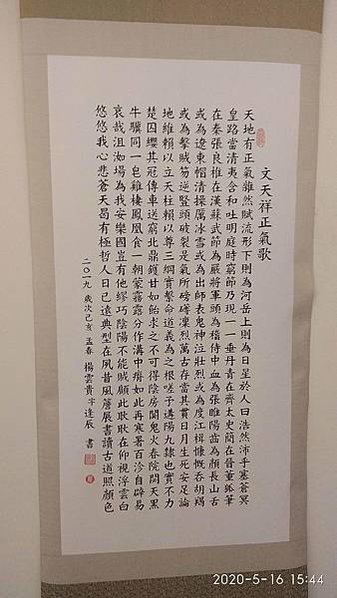 文天祥正氣歌
天地有正氣雜然賦流形下則為河岳上則為日星於人曰浩然沛乎塞蒼冥
皇路當清夷含和吐明庭時窮節乃現一一垂丹青在齊太史簡在晉董狐筆
在秦張良椎在漢蘇武節為嚴將軍頭為嵇侍中血為張睢陽齒為顏長山舌
或為遼東帽清操厲冰雪或為出師表鬼神泣壯烈或為度江楫慷慨吞胡羯
或為擊賊笏逆豎頭破裂是氣所磅礡凜烈萬古存當其貫日月生死安足論
地維賴以立天柱賴以尊三綱實繫命道義為之根嗟予遘陽九隸也實不力
楚囚纓其冠傳車送窮北鼎鑊甘如飴求之不可得陰房闃鬼火春院閟天黑
牛驥同一皂雞棲鳳凰食一朝蒙霧露分作溝中瘠如此再寒暑百沴自辟易
哀哉沮洳場為我安樂國豈有他繆巧陰陽不能賊顧此耿耿在仰視浮雲白
悠悠我心悲蒼天曷有極哲人日已遠典型在夙昔風簷展書讀古道照顏色
二〇一九 歲次己亥 孟春 楊雲貴 字逢辰 書
2020-5-16 15:44